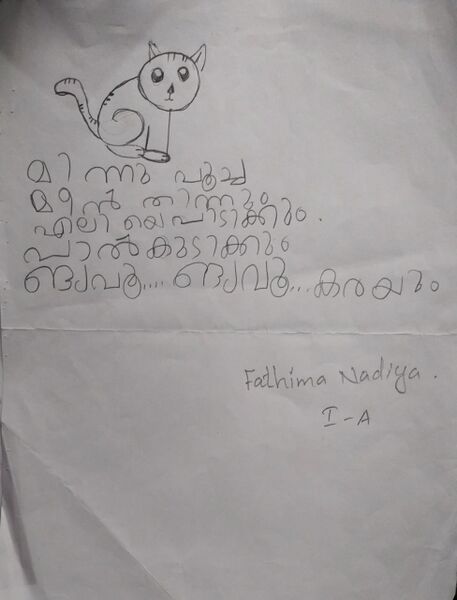 മിന്നു പൂച്ച
മീൻ തിന്നും
എലിയെപിടിക്കും.
പാൽകുടിക്കും
ങ്യാവൂ.... ങ്യാവൂ... കരയും
Fathima Nadiya.
I-A